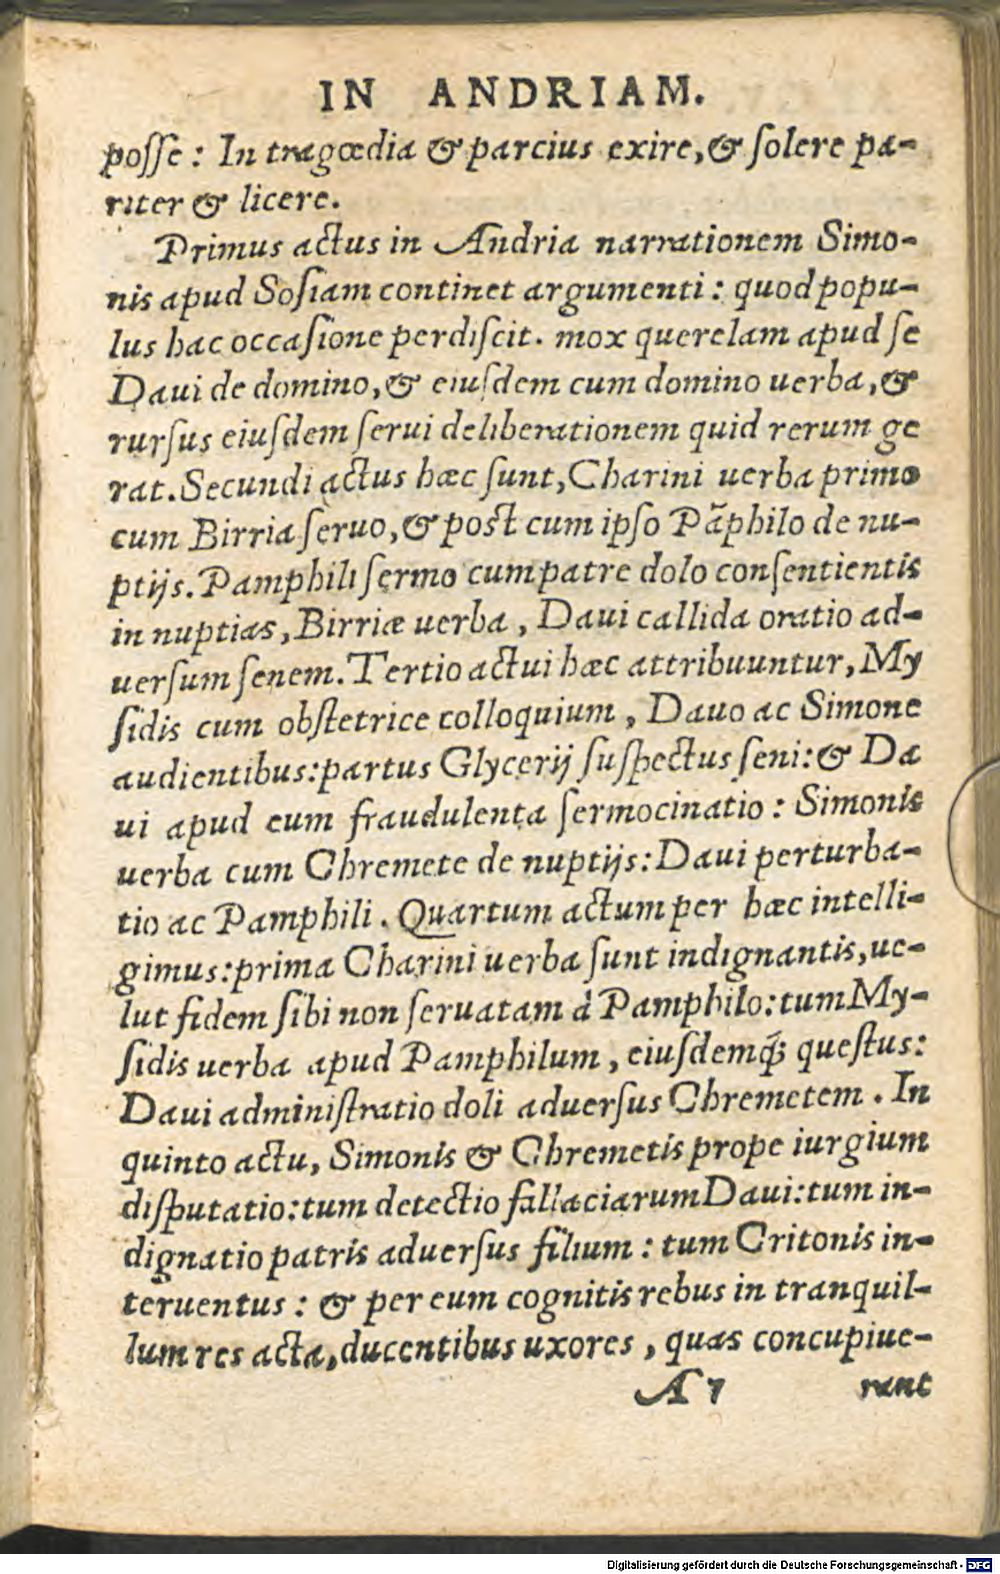 IN ANDRIAM.
posse: In tragœdia & parcius exire, & solere pa-
riter & licere.
Primus actus in Andria narrationem Simo-
nis apud Sosiam continet argumenti: quod popu-
lus hac occasione perdiscit. mox querelam apud se
Daui de domino, & eiusdem cum domino uerba, &
rursus eiusdem serui deliberationem quid rerum ge
rat. Secundi actus hæc sunt, Charini uerba primo
cum Birria seruo, & post cum ipso Pãphilo de nu-
ptijs. Pamphili sermo cum patre dolo consentientis
in nuptias, Birriæ uerba, Daui callida oratio ad-
uersum senem. Tertio actui hæc attribuuntur, My
sidis cum obstetrice colloquium, Dauo ac Simone
audientibus: partus Glycerij suspectus seni: & Da
ui apud eum fraudulenta sermocinatio: Simonis
uerba cum Chremete de nuptijs: Daui perturba-
tio ac Pamphili. Quartum actum per hæc intelli-
gimus: prima Charini uerba sunt indignantis, ue-
lut fidem sibi non seruatam à Pamphilo: tum My-
sidis uerba apud Pamphilum, eiusdemq́; questus:
Daui administratio doli aduersus Chremetem. In
quinto actu, Simonis & Chremetis prope iurgium
disputatio: tum detectio fallaciarum Daui: tum in-
dignatio patris aduersus filium: tum Critonis in-
teruentus: & per eum cognitis rebus in tranquil-
lum res acta, ducentibus uxores, quas concupiue-
A 7 rant
Digitalisierung gefördert durch die Deutsche Forschungsgemeinschaft - DFG